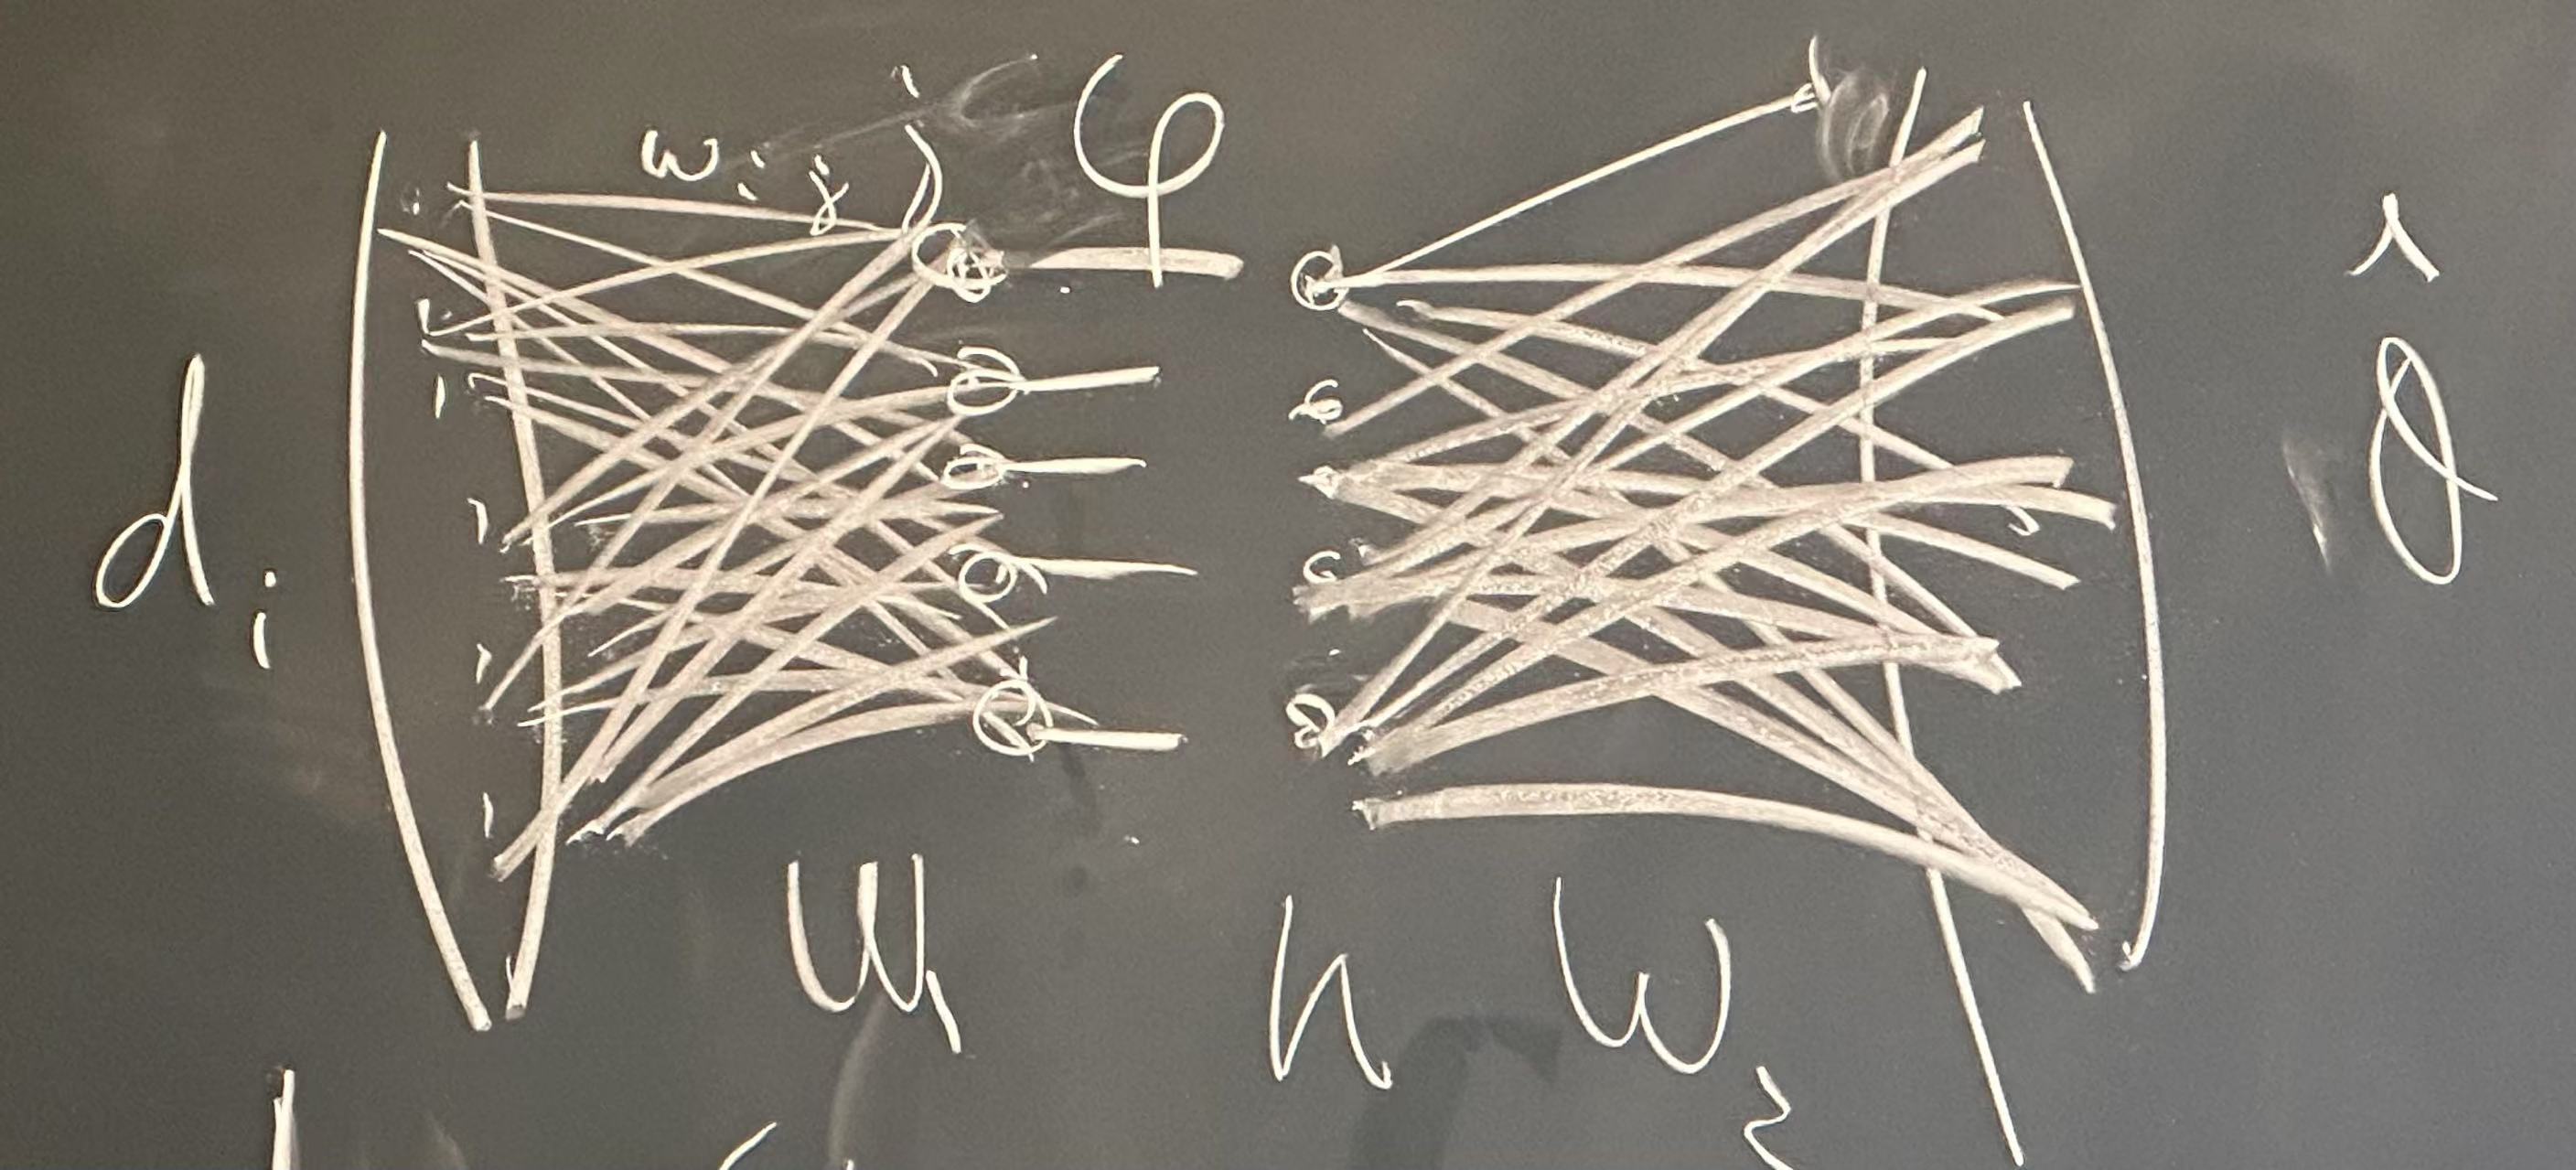 w_{ij} φ
d_i
θ̂
W_1 h W_2